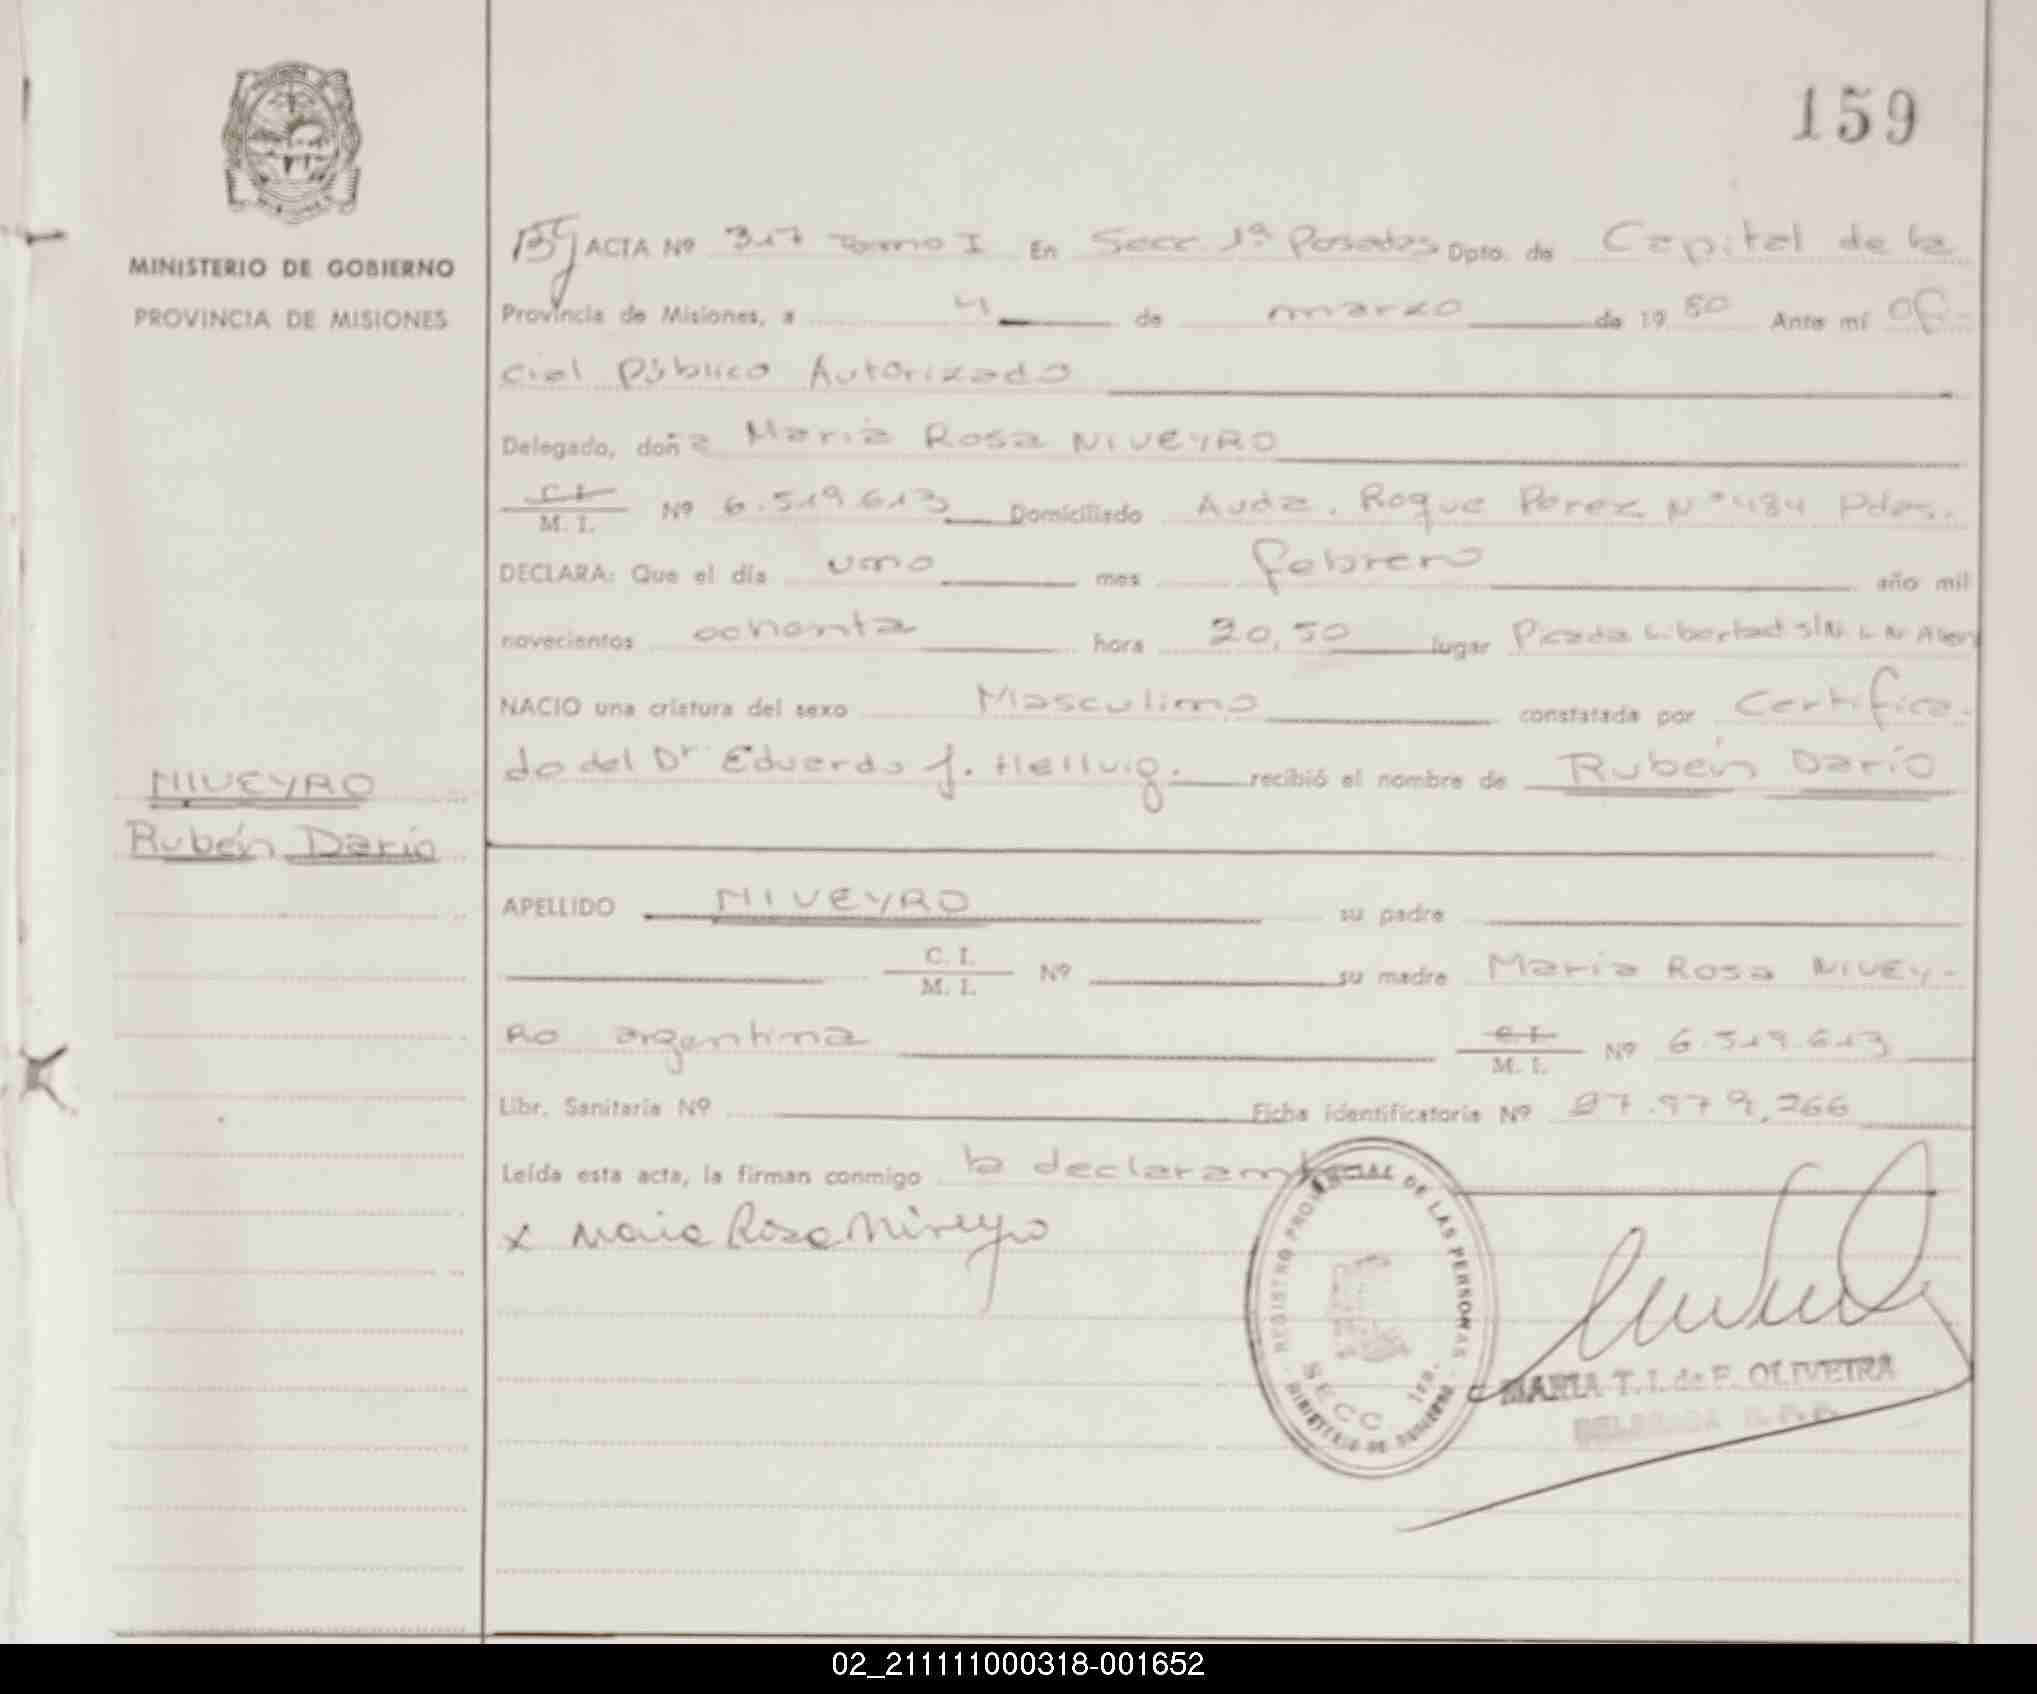 159
MINISTERIO DE GOBIERNO
PROVINCIA DE MISIONES
ACTA Nº 317 Tomo I En Secc. 1ª Posadas Dpto. de Capital de la
Provincia de Misiones, a 4 de marzo de 1980 Ante mí Ofi-
cial Público Autorizado
Delegado, doña Maria Rosa NIVEYRO
C. I.
M. I. Nº 6.519.613 Domiciliado Avda. Roque Perez Nº 484 Pdas.
DECLARA: Que el día uno mes febrero año mil
novecientos ochenta hora 20,50 lugar Picada Libertad S/N L N Alem
NACIO una criatura del sexo Masculino constatada por Certifica-
do del Dr Eduardo J. Hellwig. recibió el nombre de Rubén Darío
NIVEYRO
Rubén Darío
APELLIDO NIVEYRO su padre
C. I.
M. I. Nº su madre María Rosa NIVEY-
RO argentina C. I.
M. I. Nº 6.519.613
Libr. Sanitaria Nº Ficha identificatoria Nº 27.979.266
Leída esta acta, la firman conmigo la declarante
x Maria Rosa Niveyro
REGISTRO PROVINCIAL DE LAS PERSONAS
SECC. 1ra.
MINISTERIO DE GOBIERNO
MARIA T. I. de F. OLIVEIRA
DELEGADA R. P. P.
02_211111000318-001652